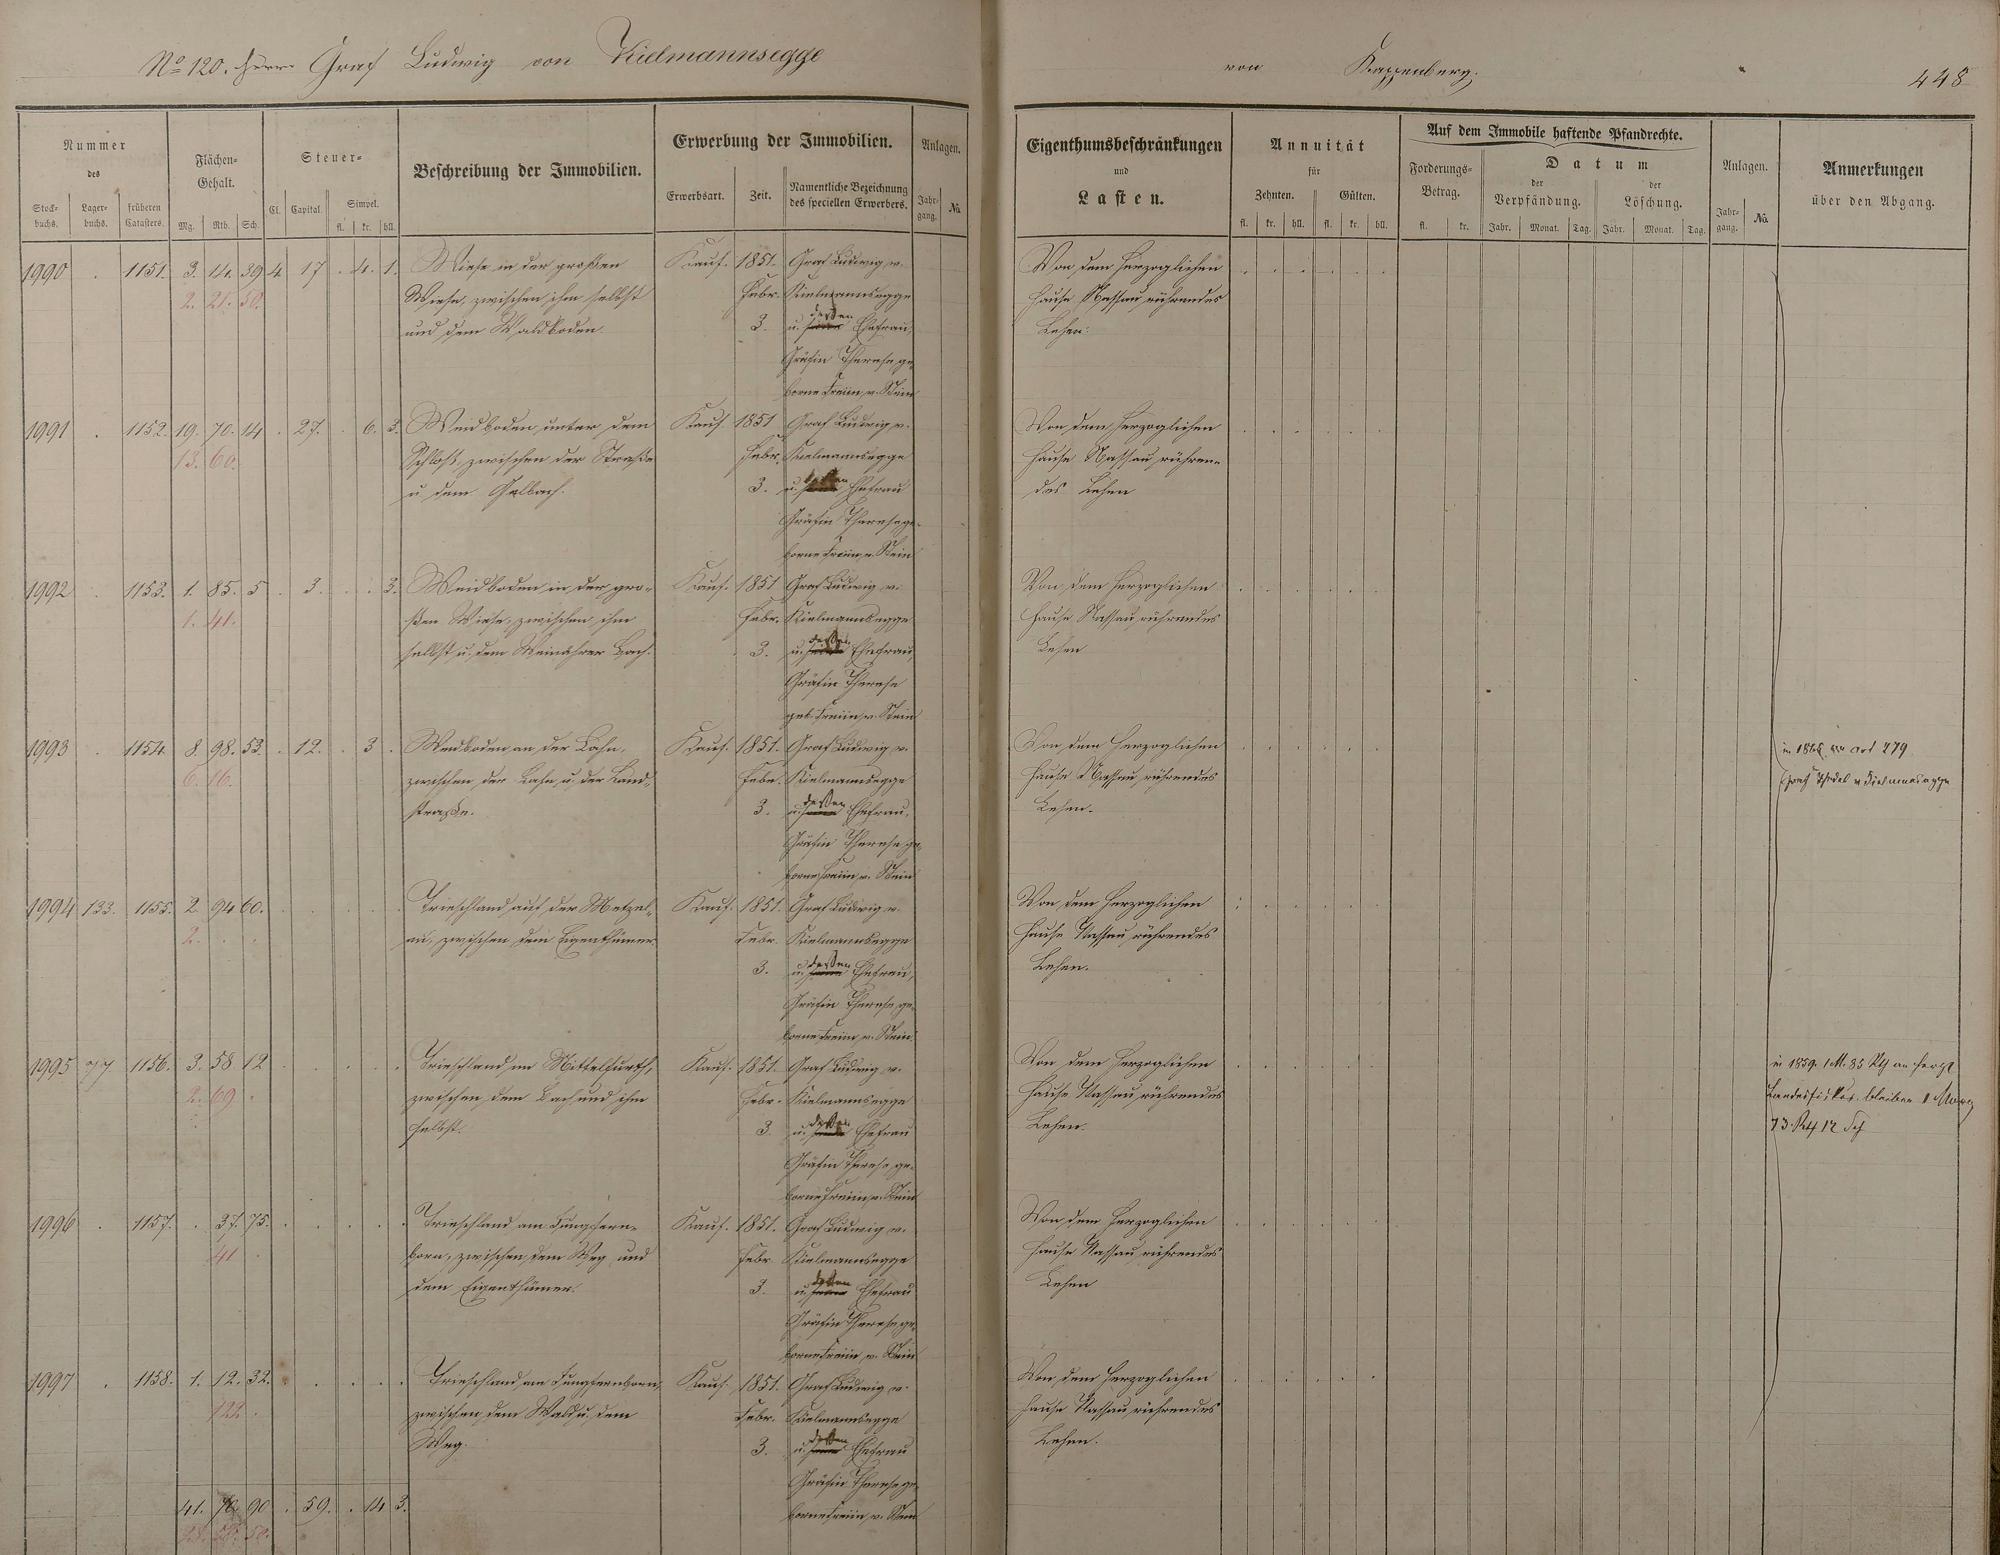 No 120. Herr Graf Ludwig von Kielmannsegge
von Kappenberg.
448
Nummer
des
Stock-
buchs.
Lager-
buchs.
früheren
Catasters.
Flächen-
Gehalt.
Mg. Rth. Sch.
Steuer-
Cl. Capital. Simpel.
fl. kr. hll.
Beschreibung der Immobilien.
Erwerbung der Immobilien.
Erwerbsart. Zeit. Namentliche Bezeichnung
des speciellen Erwerbers.
Anlagen.
Jahr-
gang. No.
Eigenthumsbeschränkungen
und
Lasten.
Annuität
für
Zehnten. Gülten.
fl. kr. hll. fl. kr. hll.
Auf dem Immobile haftende Pfandrechte.
Forderungs-
Betrag.
fl. kr.
Datum
der
Verpfändung.
der
Löschung.
Jahr. Monat. Tag. Jahr. Monat. Tag.
Anlagen.
Jahr-
gang. No.
Anmerkungen
über den Abgang.
1990 . 1151. 3. 14. 39 4. 17 . 4. 1. Wiese in der großen Kauf. 1851. Graf Ludwig v.
2. 21. 50. Wiese, zwischen ihm selbst Febr. Kielmannsegge
und dem Waldboden. 3. u. dessen Ehefrau,
Gräfin Therese, ge-
borne Freiin v. Stein
Von dem Herzoglichen
Hause Nassau rührendes
Lehen.
1991 . 1152. 19. 70. 14 . 27. . 6. 3. Weidboden unter dem Kauf. 1851 Graf Ludwig v.
13. 60. Schloß, zwischen der Straße Febr. Kielmannsegge
u. dem Gelbach. 3. u. dessen Ehefrau
Gräfin Therese, ge-
borne Freiin v. Stein
Von dem Herzoglichen
Hause Nassau rühren-
des Lehen
1992 . 1153. 1. 85. 5 . 3. . . 3. Weidboden in der gro- Kauf. 1851 Graf Ludwig v.
1. 41. ßen Wiese, zwischen ihm Febr. Kielmannsegge
selbst u. dem Weinährer Bach. 3. u. dessen Ehefrau,
Gräfin Therese
geb. Freiin v. Stein
Von dem Herzoglichen
Hause Nassau rührendes
Lehen
1993 . 1154. 8. 98. 53. . 12. . 3 . Weidboden an der Lahn, Kauf. 1851. Graf Ludwig v.
6. 16. zwischen der Lahn u. der Land- Febr. Kielmannsegge
straße. 3. u. dessen Ehefrau,
Gräfin Therese, ge-
borne Freiin v. Stein
Von dem Herzoglichen
Hause Nassau rührendes
Lehen.
Art 279
v Kielmansegge
1994 133. 1155. 2. 94 60. Trieschland auf der Metzel- Kauf. 1851. Graf Ludwig v.
2. au, zwischen dem Eigenthümer Febr. Kielmannsegge
3. u. dessen Ehefrau,
Gräfin Therese, ge-
borne Freiin v. Stein.
Von dem Herzoglichen
Hause Nassau rührendes
Lehen.
1995 77 1156. 3. 58 12 Trieschland im Mittelfurth, Kauf. 1851. Graf Ludwig v.
2. 69 zwischen dem Bach und ihm Febr. Kielmannsegge
selbst. 3. u. dessen Ehefrau
Gräfin Therese, ge-
borne Freiin v. Stein
Von dem Herzoglichen
Hause Nassau rührendes
Lehen.
in 1859. 1 M. 85 Rth an Herzgl
Landesfiskus. bleiben 1 Morg
73 Rth 12 Sch
1996 . 1157. . 37. 75. Trieschland am Jungfern- Kauf. 1851. Graf Ludwig v.
41 born, zwischen dem Weg und Febr. Kielmannsegge
dem Eigenthümer. 3. u. dessen Ehefrau
Gräfin Therese ge-
borne Freiin v. Stein
Von dem Herzoglichen
Hause Nassau rührendes
Lehen
1997 . 1158. 1. 12. 32. Trieschland am Jungfernborn, Kauf. 1851. Graf Ludwig v.
122. zwischen dem Wald u. dem Febr. Kielmannsegge
Weg. 3. u. dessen Ehefrau
Gräfin Therese ge-
borne Freiin v. Stein
Von dem Herzoglichen
Hause Nassau rührendes
Lehen.
41. 70. 90 . 59. . 14 3.